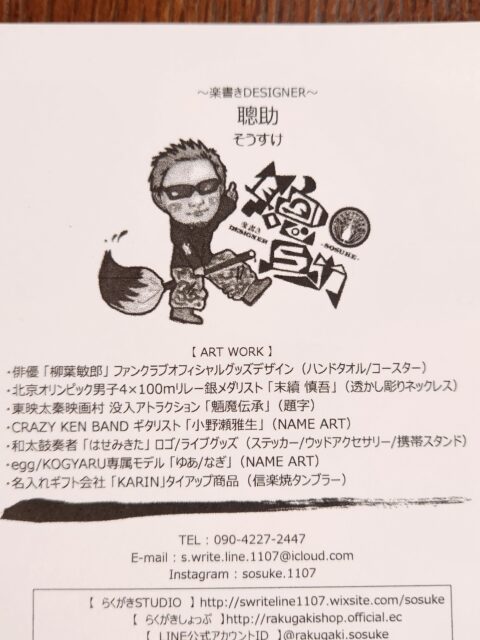 ～楽書きDESIGNER～
聰助
そうすけ
楽書き
DESIGNER
-SOSUKE-
【 ART WORK 】
・俳優「柳葉敏郎」ファンクラブオフィシャルグッズデザイン（ハンドタオル/コースター）
・北京オリンピック男子4×100mリレー銀メダリスト「末續 慎吾」（透かし彫りネックレス）
・東映太秦映画村 没入アトラクション「魑魔伝承」（題字）
・CRAZY KEN BAND ギタリスト「小野瀬雅生」（NAME ART）
・和太鼓奏者「はせみきた」ロゴ/ライブグッズ（ステッカー/ウッドアクセサリー/携帯スタンド）
・egg/KOGYARU専属モデル「ゆあ/なぎ」（NAME ART）
・名入れギフト会社「KARIN」タイアップ商品（信楽焼タンブラー）
TEL : 090-4227-2447
E-mail : s.write.line.1107@icloud.com
Instagram : sosuke.1107
【 らくがきSTUDIO 】http://swriteline1107.wixsite.com/sosuke
【 らくがきしょっぷ 】http://rakugakishop.official.ec
【 LINE公式アカウントID 】@rakugaki.sosuke